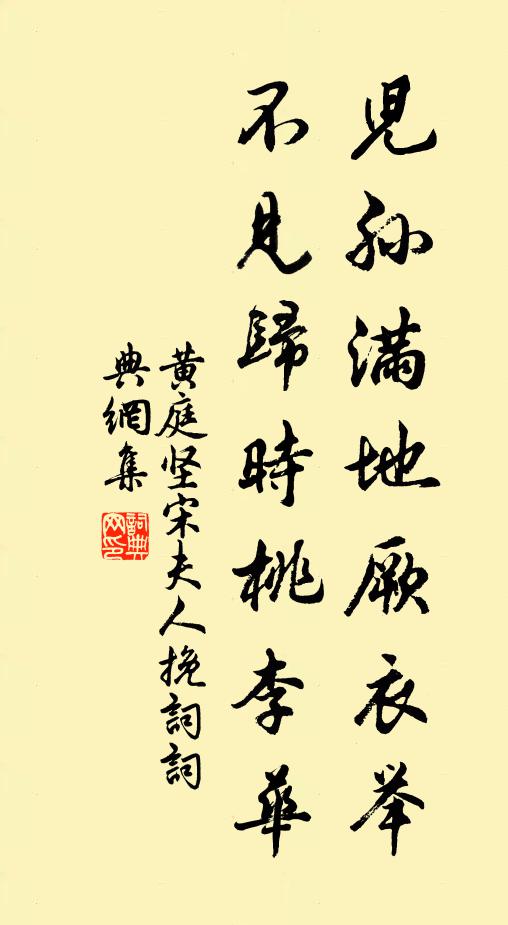 児孫滿地厥衣举
不見歸時桃李華
黄庭坚宋夫人挽詞詞
典網集
詞典
网印